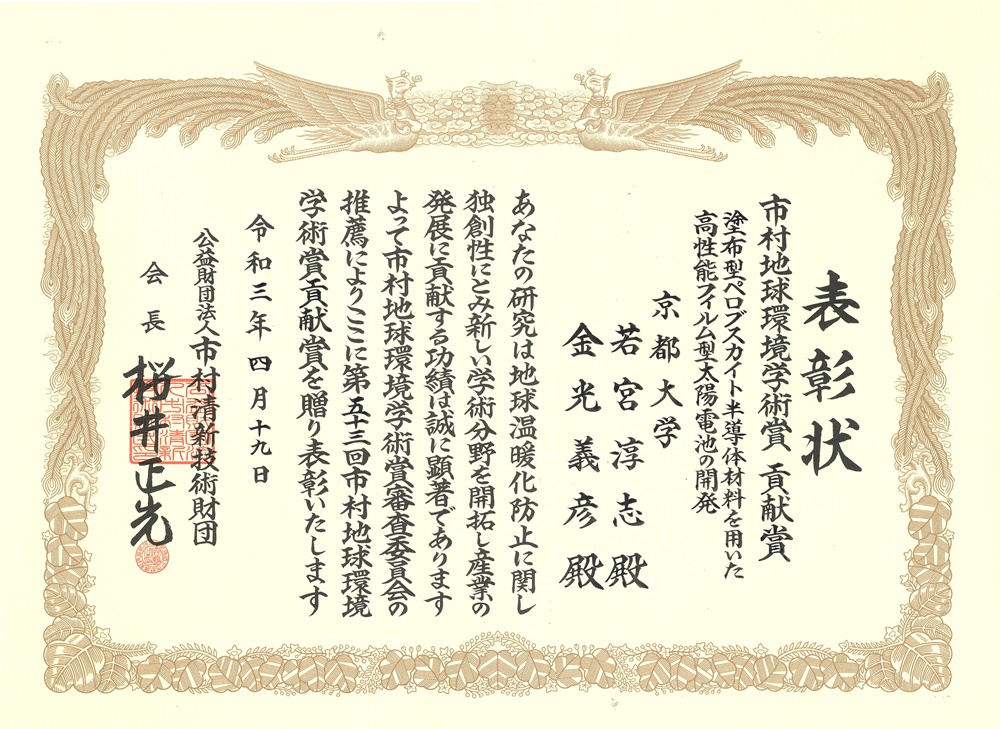 表彰状
市村地球環境学術賞 貢献賞
塗布型ペロブスカイト半導体材料を用いた
高性能フィルム型太陽電池の開発
京都大学
若宮淳志殿
金光義彦殿
あなたの研究は地球温暖化防止に関し
独創性にとみ新しい学術分野を開拓し産業の
発展に貢献する功績は誠に顕著であります
よって市村地球環境学術賞審査委員会の
推薦によりここに第五十三回市村地球環境
学術賞貢献賞を贈り表彰いたします
令和三年四月十九日
公益財団法人市村清新技術財団
会長 桜井正光